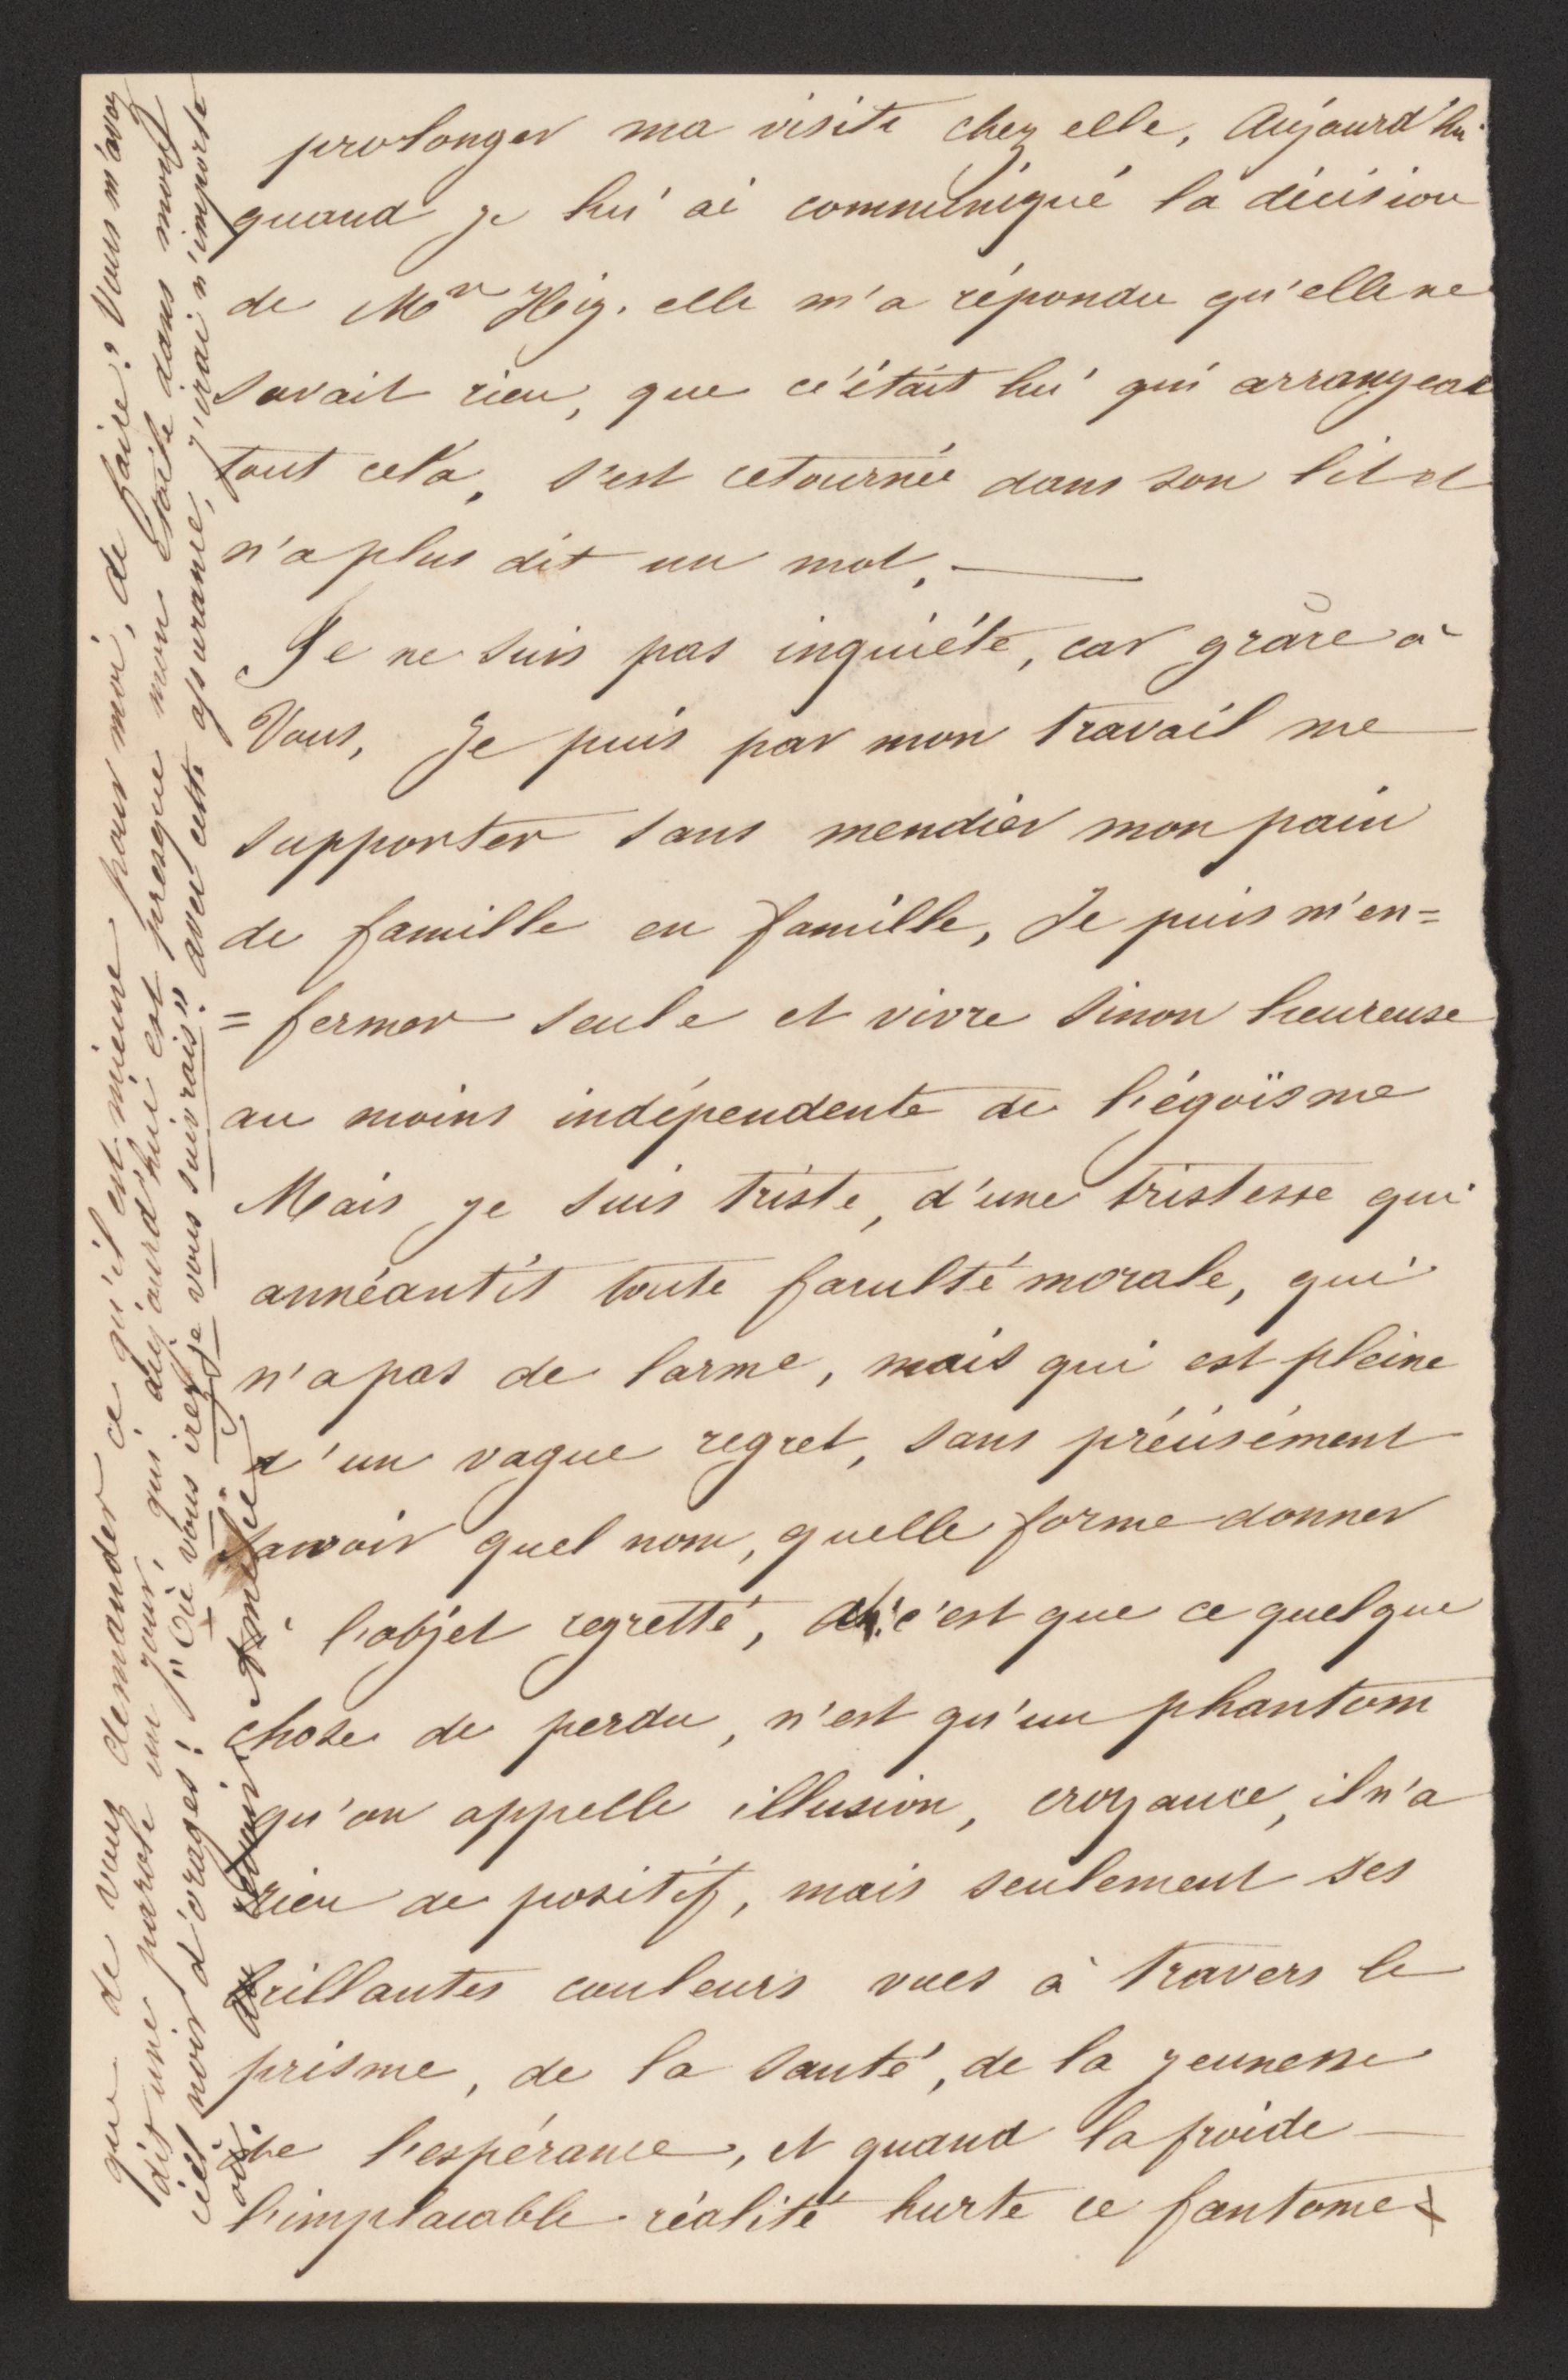 prolonger ma visite chez elle, Aujourd'hui
quand je lui ai communiqué la décision
de Mr Hig. elle m'a répondu qu'elle ne
savait rien, que c'était lui qui arrangeait
tout cela, s'est retournée dans son lit et
n'a plus dit un mot. —
Je ne suis pas inquiéte, car grâce à
Vous, Je puis par mon travail me
supporter sans mendier mon pain
de famille en famille, Je puis m'en=
=fermer seule et vivre sinon heureuse
au moins indépendente de l'égoïsme
Mais je suis triste, d'une tristesse qui
annéantit toute faculté morale, qui
n'a pas de larme, mais qui est pleine
d'un vague regret, sans précisément
savoir quel nom, quelle forme donner
à l'objet regretté, Ah! c'est que ce quelque
chose de perdu, n'est qu'un phantom
qu'on appelle illusion, croyance, il n'a
rien de positif, mais seulement ses
brillantes couleurs vues à travers le
prisme, de la santé, de la jeunesse
de l'espérance, et quand la froide —
l'implacable réalité hurte ce fantome
que de vous demander ce qu'il est mieux pour moi, de faire? Vous m'avez
dit une parole un jour, qui aujourd'hui est presque mon étoile dans mon
ciel noir d'orages! "Où vous irez je vous suivrais" avec cette assurance, j'irai n'importe
où. au revoir Amélie